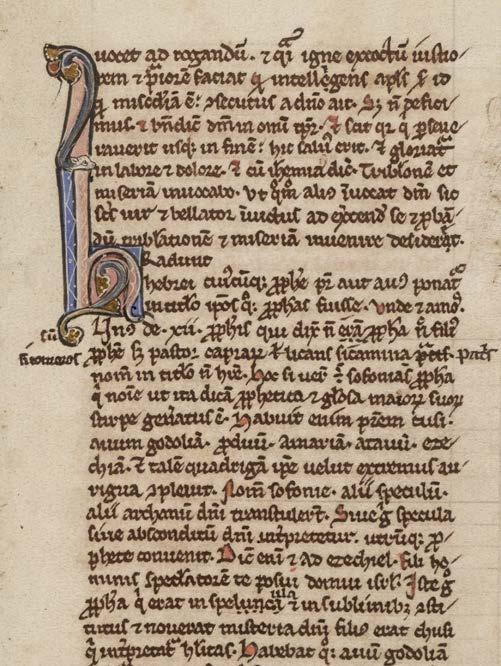 uocet ad rogandū. ⁊ q̄i igne excoctum iustio
rem ⁊ p̄riorē faciat q̄ intelligens apl̄s ꝑ id
q̄ misc̄dīa ē: ꝯsecutus a dn̄o ait. Sꝫ n̄ defici
mus. ⁊ bn̄dic dn̄m in omi tꝑr. ⁊ scit qr̄ q̄ ꝑseue
rauerit usqꝫ in finē: hic saluꝰ erit. ⁊ gloriat̄
in labore ⁊ dolore. ⁊ cū ihemia dic̄. Tribl̄onē et
miseriā inuocabo. Vt q̄m̄ aliꝰ īuocat dn̄m sic
sc̄s uir ⁊ bellator īuictus ad excend̄ se ⁊ ꝓbā
dū tribulationē ⁊ miseriā inuenire desiderat̄.
Radunt
hebrei cuiꝰcūqꝫ ꝓph̄e pr̄ aut auꝰ ponat̄
in titlo ip̄os q̄ꝫ ꝓph̄as fuisse. Vnde ⁊ amoꝰ
Vnꝰ de .xii. ꝓph̄is qui dix̄ n̄ erā ꝓph̄a n̄ filꝰ
ꝓph̄e sꝫ pastor caprarꝫ ⁊ licans sicamina p̄ris
nom̄ in titlo n̄ h̄t. Hoc si ueꝝ ē. sofonias ꝓph̄a
q̄ noīe ut ita dicā ꝓphetica ⁊ gl̄osa maioꝝ suoꝝ
stirpe gen̄atus ē. Habuit enim pr̄em cusi.
auum godoliā. ꝓauū. amariā. atauū. eze
chiā. ⁊ talē quadrigā ip̄e uelut extremus au
riga ꝯpleuit. Nom̄ sofonie. alii speculū.
alii archanū dn̄i transtuler̄t. Siue g̊ specula
siue absconditū dn̄i int̄pretetur. utrūqꝫ ꝓ
phete conuenit. Dic̄ eni ⁊ ad ezechiel. fili ho
minis spec̄latorē te posui domui isrl̄. Iste g̊
ꝓph̄a q̄ erat in speluncā ⁊ in sublimibꝫ ꝯsti
tutus ⁊ nouerat misteria dn̄i filiꝰ erat chusi
q̄ int̄pretat̄ h̄litas. Habebat q̄ꝫ auū godoliam